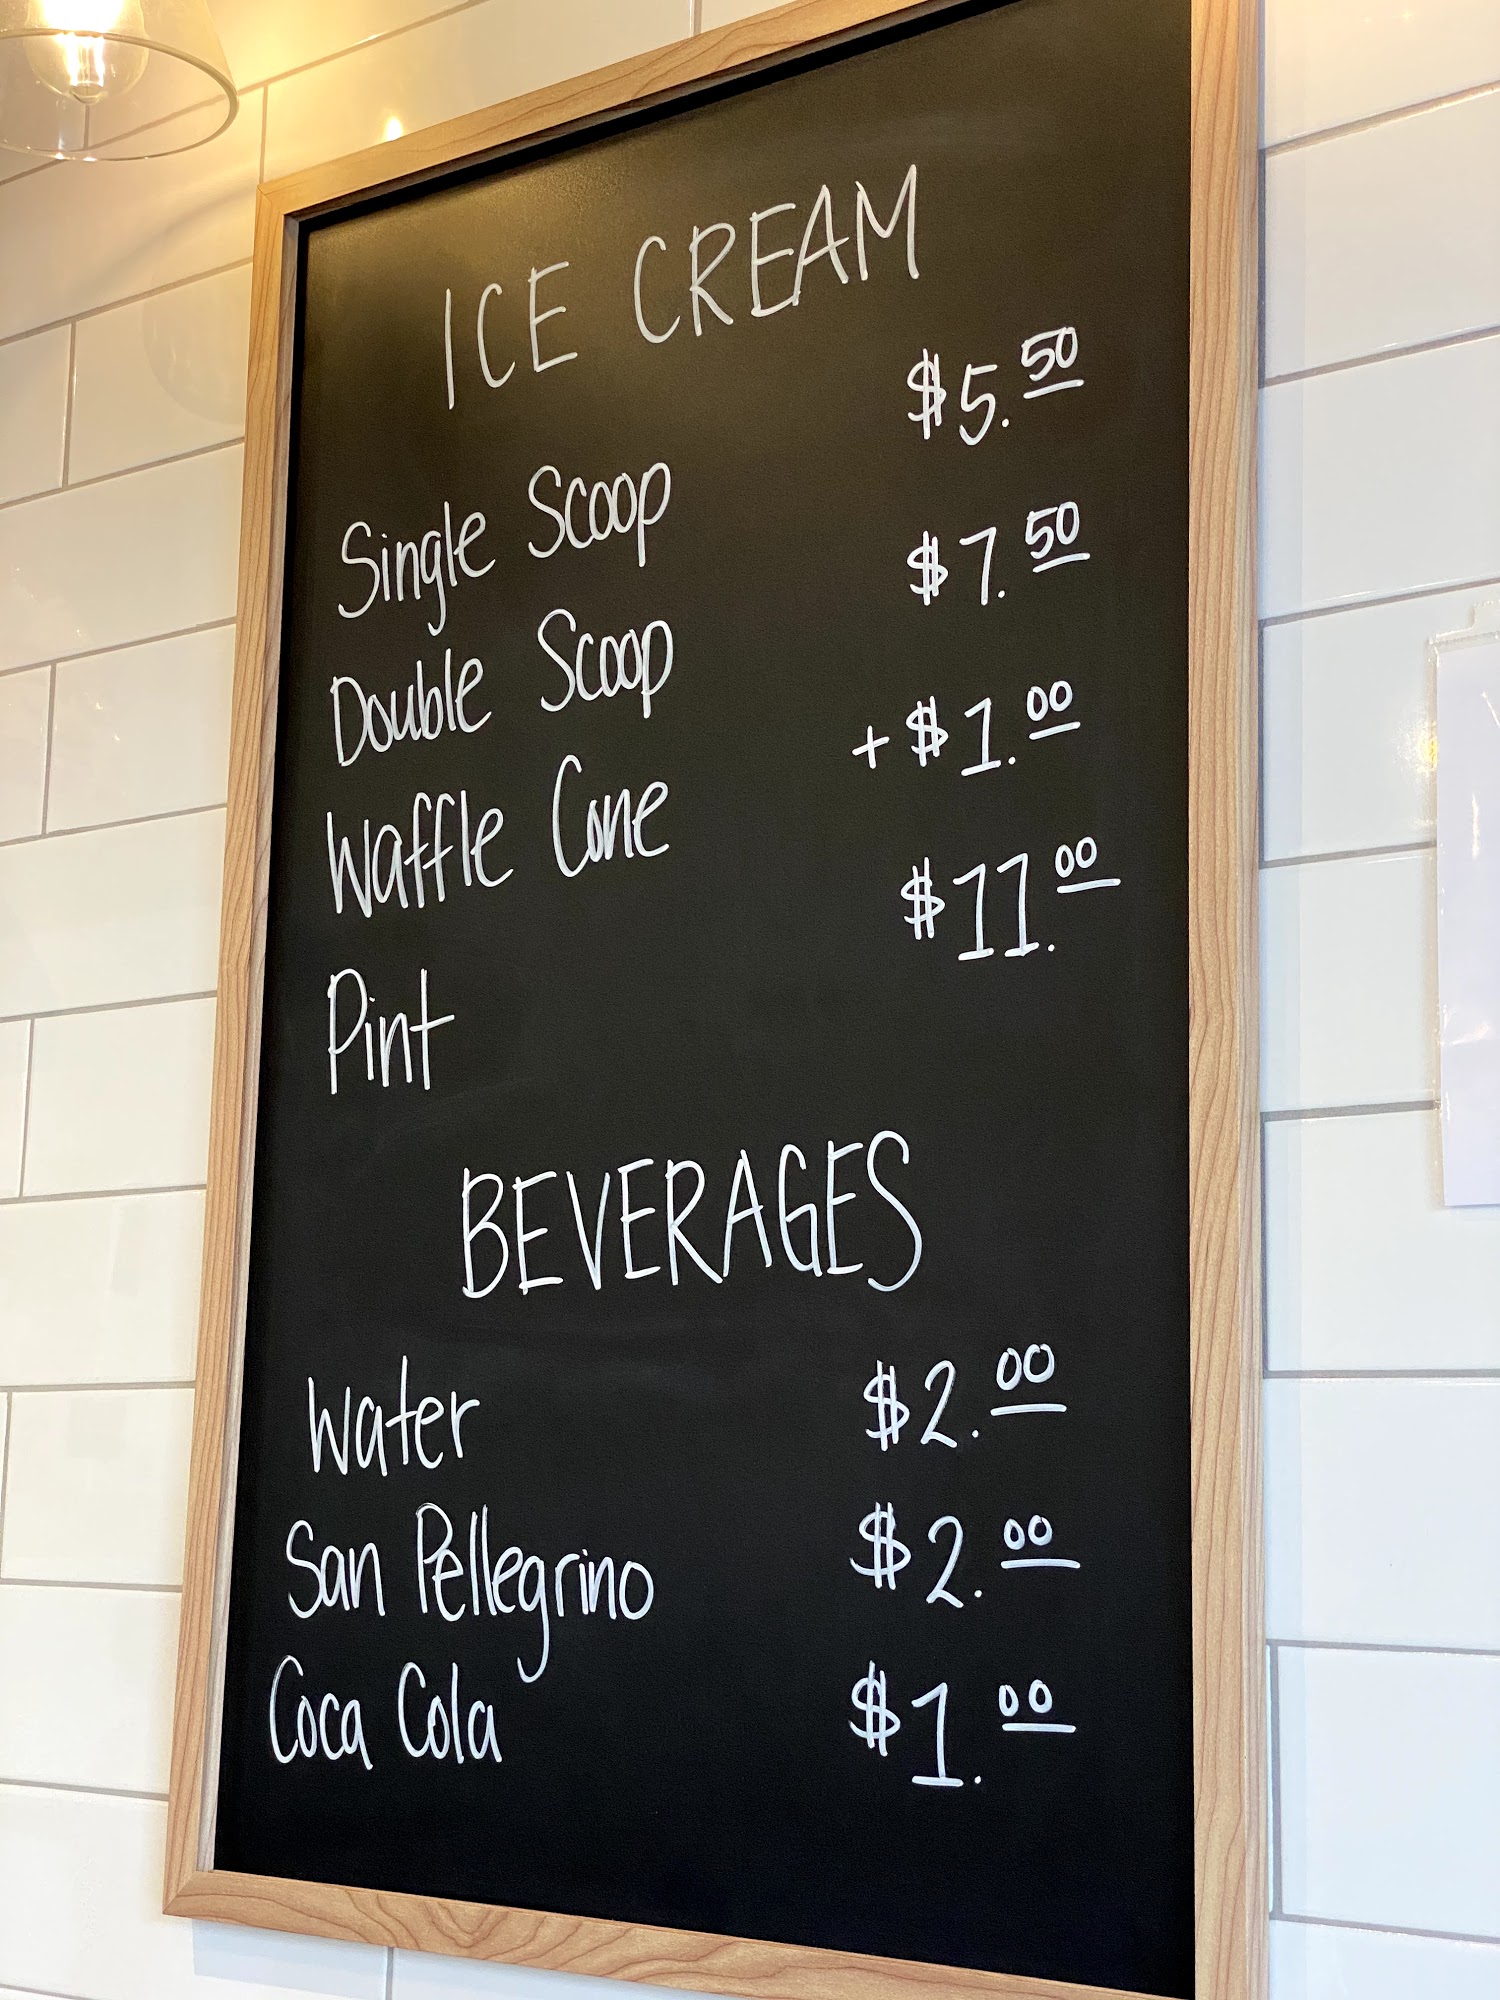 ICE CREAM
Single Scoop $5.50
Double Scoop $7.50
Waffle Cone +$1.00
Pint $11.00
BEVERAGES
Water $2.00
San Pellegrino $2.00
Coca Cola $1.00